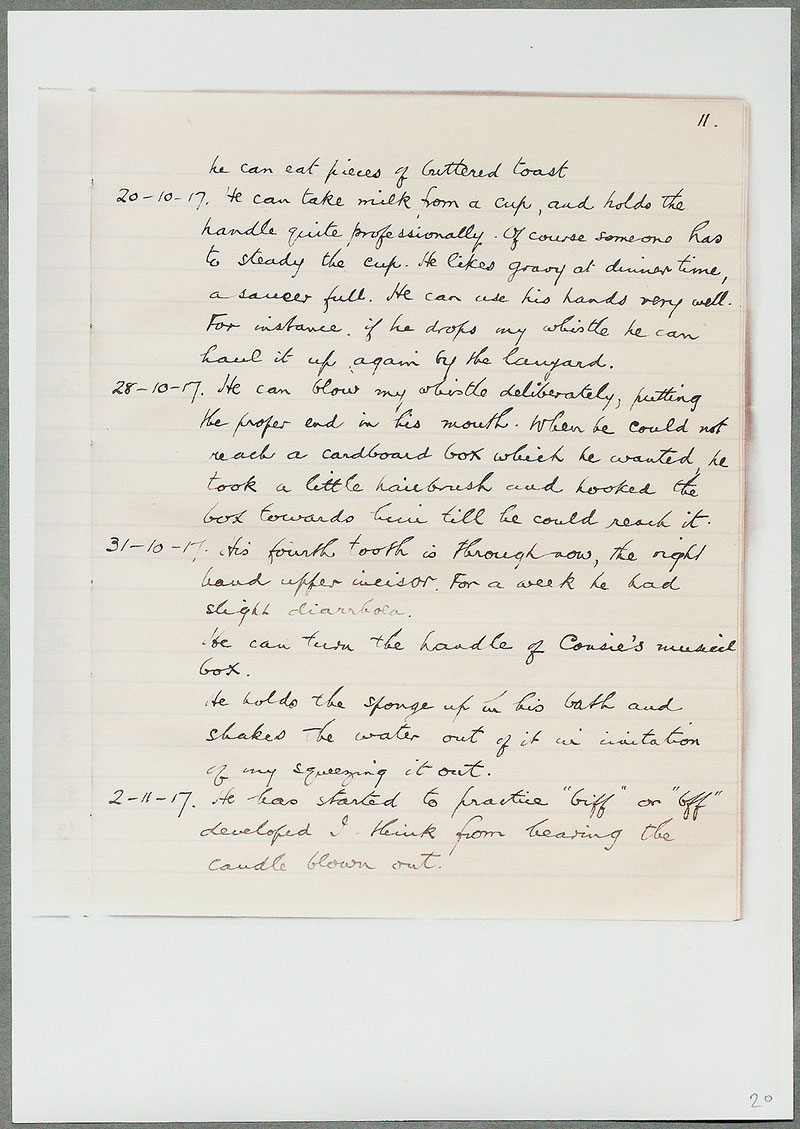 11.
he can eat pieces of buttered toast
20-10-17. He can take milk from a cup, and holds the
handle quite professionally. Of course someone has
to steady the cup. He likes gravy at dinner time,
a saucer full. He can use his hands very well.
For instance, if he drops my whistle he can
haul it up again by the lanyard.
28-10-17. He can blow my whistle deliberately, putting
the proper end in his mouth. When he could not
reach a cardboard box which he wanted, he
took a little hairbrush and hooked the
box towards him till he could reach it.
31-10-17. His fourth tooth is through now, the right
hand upper incisor. For a week he had
slight diarrhoea.
He can turn the handle of Consie's musical
box.
He holds the sponge up in his bath and
shakes the water out of it in imitation
of my squeezing it out.
2-11-17. He has started to practice "biff" or "bff"
developed I think from hearing the
candle blown out.
20